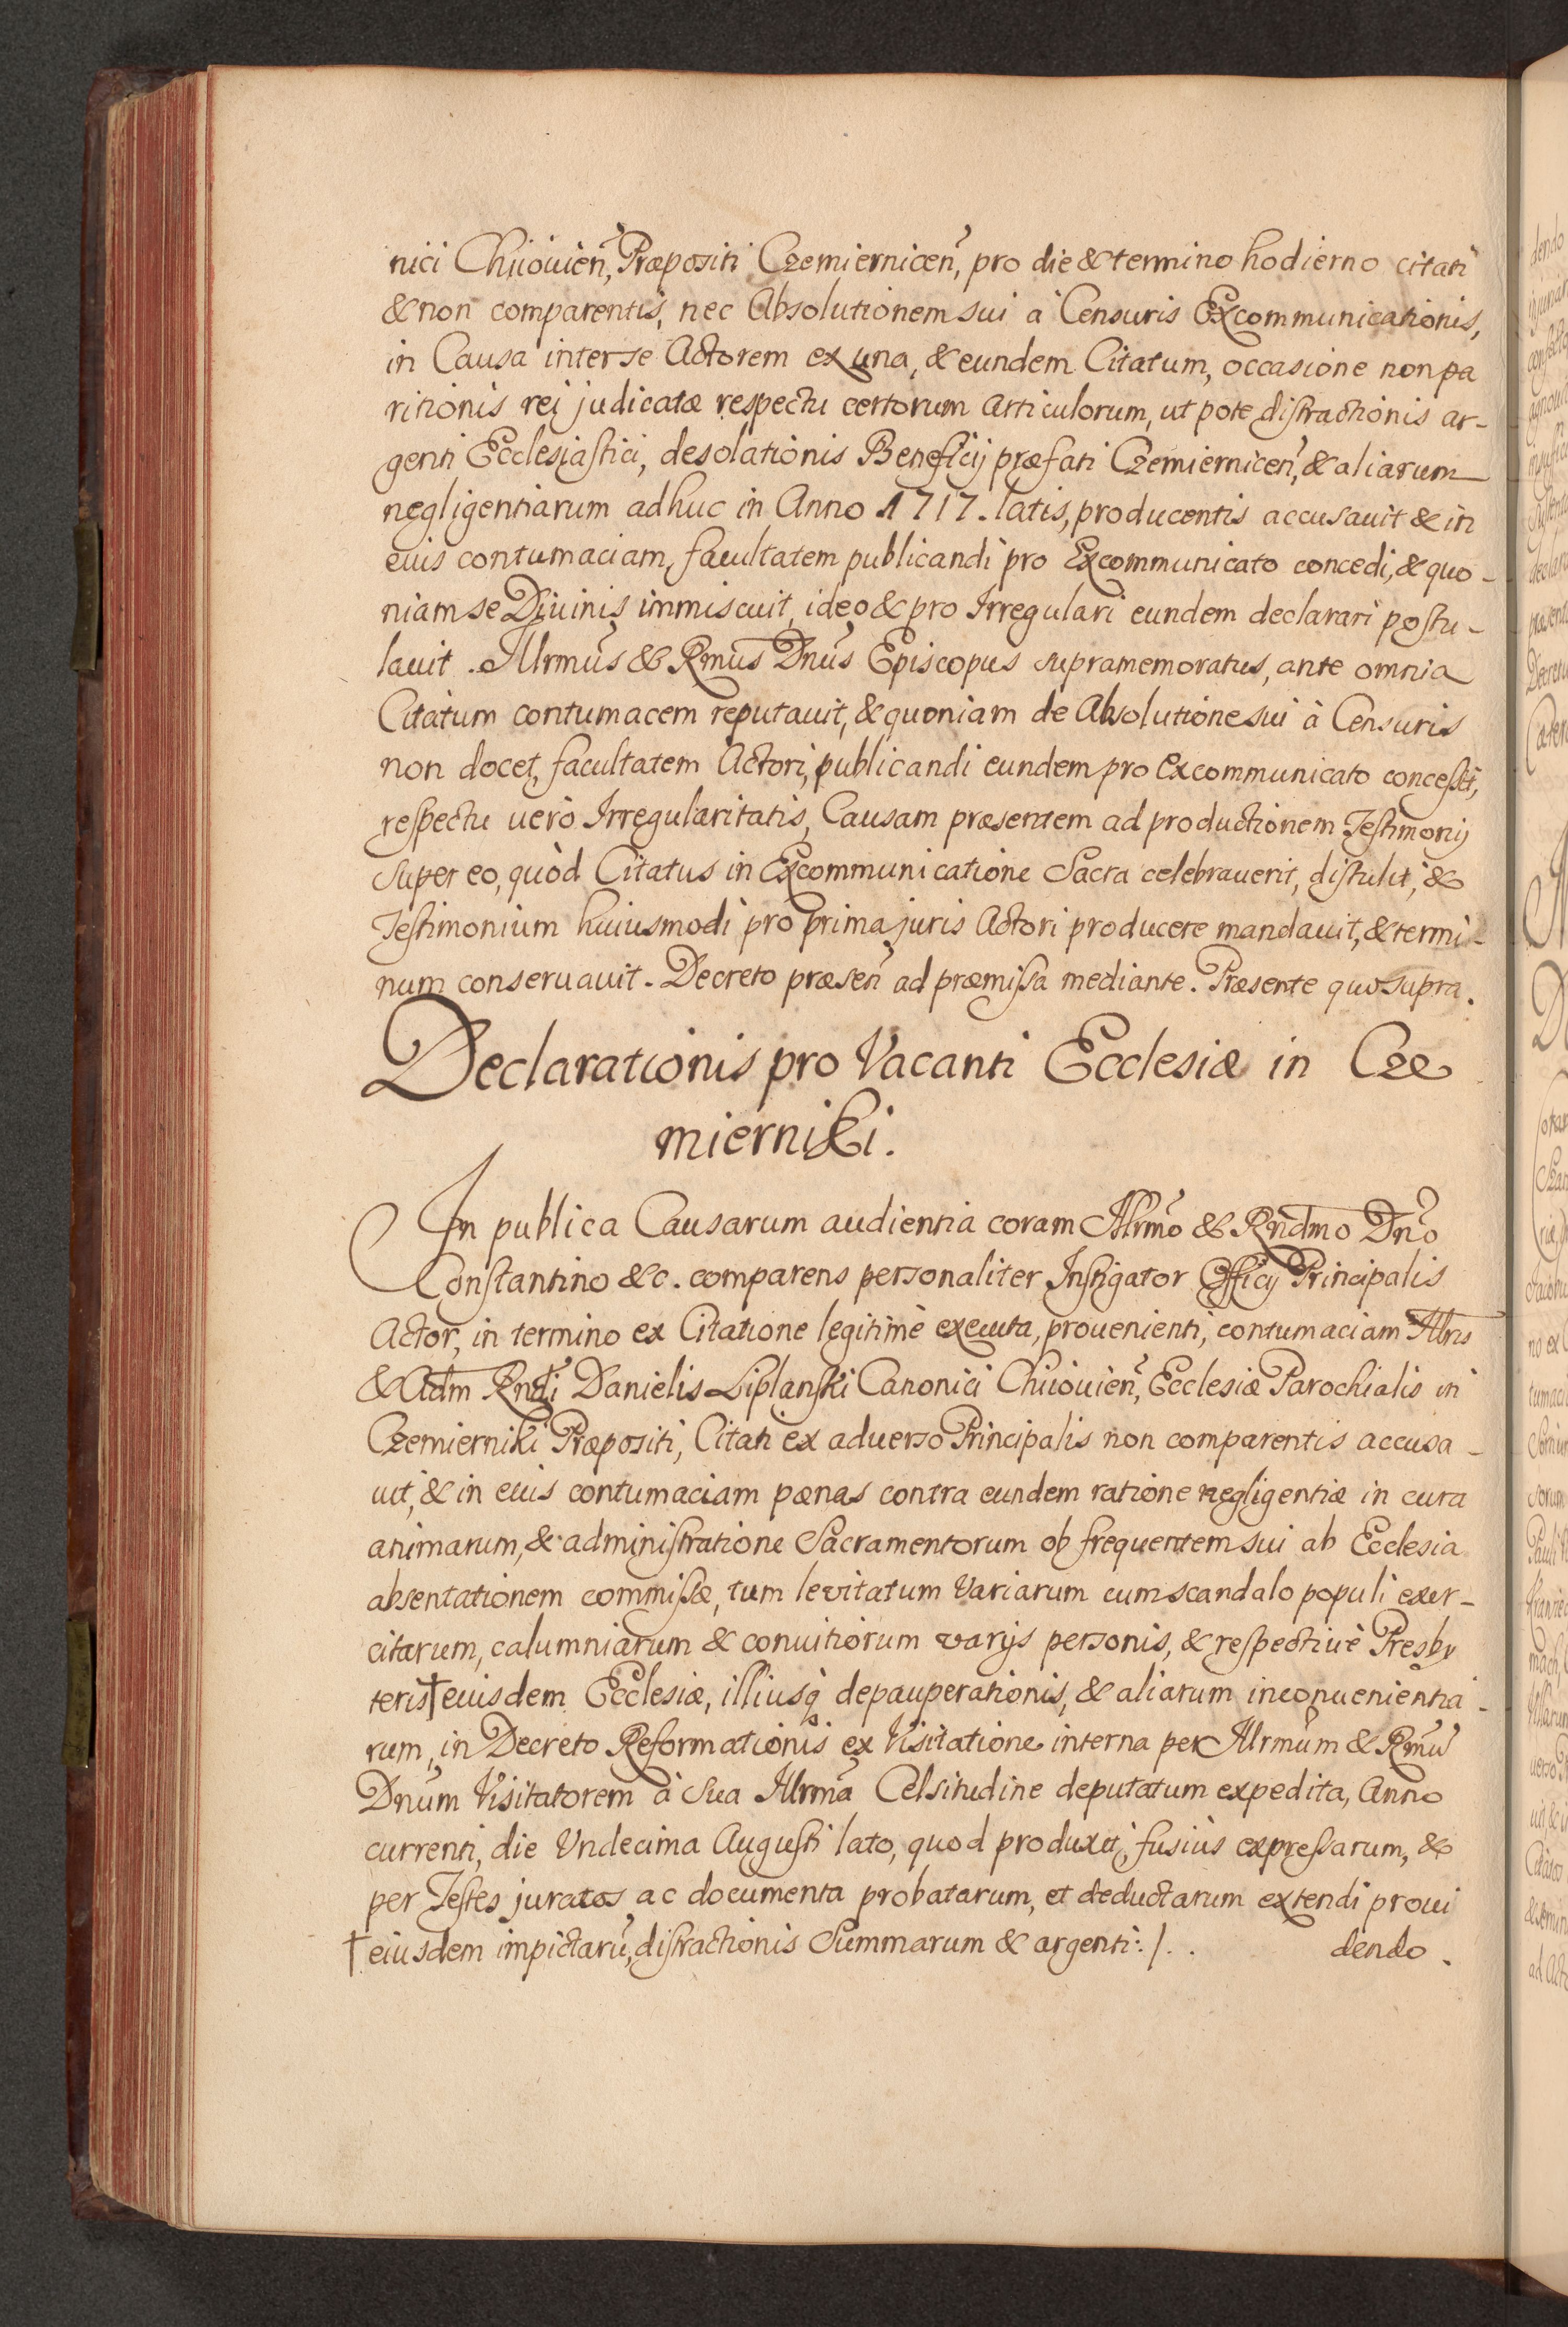 nici Chiiouień, Præpositi Czemierniceń, pro die & termino hodierno citati
& non comparentis, nec Absolutionem sui à Censuris Excommunicationis,
in Causa inter se Actorem ex una, & eundem Citatum, occasione non pa
ritionis rei judicatæ respectu certorum Articulorum, ut pote distractionis ar-
genti Ecclesiastici, desolationis Beneficij præfati Czemierniceń, & aliarum
negligentiarum adhuc in Anno 1717. latis, producentis accusauit & in
eius contumaciam, facultatem publicandi pro Excommunicato concedi, & quo-
niam se Diuinis immiscuit, ideo & pro Irregulari eundem declarari postu-
lauit. Illrmus & Rmus Dnus Episcopus supramemoratus, ante omnia
Citatum contumacem reputauit, & quoniam de Absolutione sui à Censuris
non docet, facultatem Actori, publicandi eundem pro Excommunicato concessit,
respectu uerò Irregularitatis, Causam præsentem ad productionem Testimonij
super eo, quòd Citatus in Excommunicatione Sacra celebrauerit, distulit, &
Testimonium huiusmodi pro prima juris Actori producere mandauit, & termi-
num conseruauit. Decreto præseń ad præmissa mediante. Præsente quo supra.
Declarationis pro Vacanti Ecclesiæ in Cze
mierniki.
In publica Causarum audientia coram Illrmo & Rndmo Dno
Constantino &c. comparens personaliter Instigator Officij Principalis
Actor, in termino ex Citatione legitimè executa, prouenienti, contumaciam Illris
& Adm Rndi Danielis Liplanski Canonici Chiiouień, Ecclesiæ Parochialis in
Czemierniki Præpositi, Citati ex aduerso Principalis non comparentis accusa-
uit, & in eius contumaciam pœnas contra eundem ratione negligentiæ in cura
animarum, & administratione Sacramentorum ob frequentem sui ab Ecclesia
absentationem commissæ, tum levitatum Variarum cum scandalo populi exer-
citarum, calumniarum & conuitiorum varijs personis, & respectiuè Presby
teris † eiusdem Ecclesiæ, illiusq depauperationis, & aliarum inconuenientia-
rum, in Decreto Reformationis ex Visitatione interna per Illrmum & Rmu
Dnum Visitatorem à Sua Illrma Celsitudine deputatum expedita, Anno
currenti, die Vndecima Augusti lato, quod produxit, fusius expressarum, &
per Testes juratos ac documenta probatarum, et deductarum extendi proui
† eiusdem impictaru, distractionis Summarum & argenti :/. . dendo.